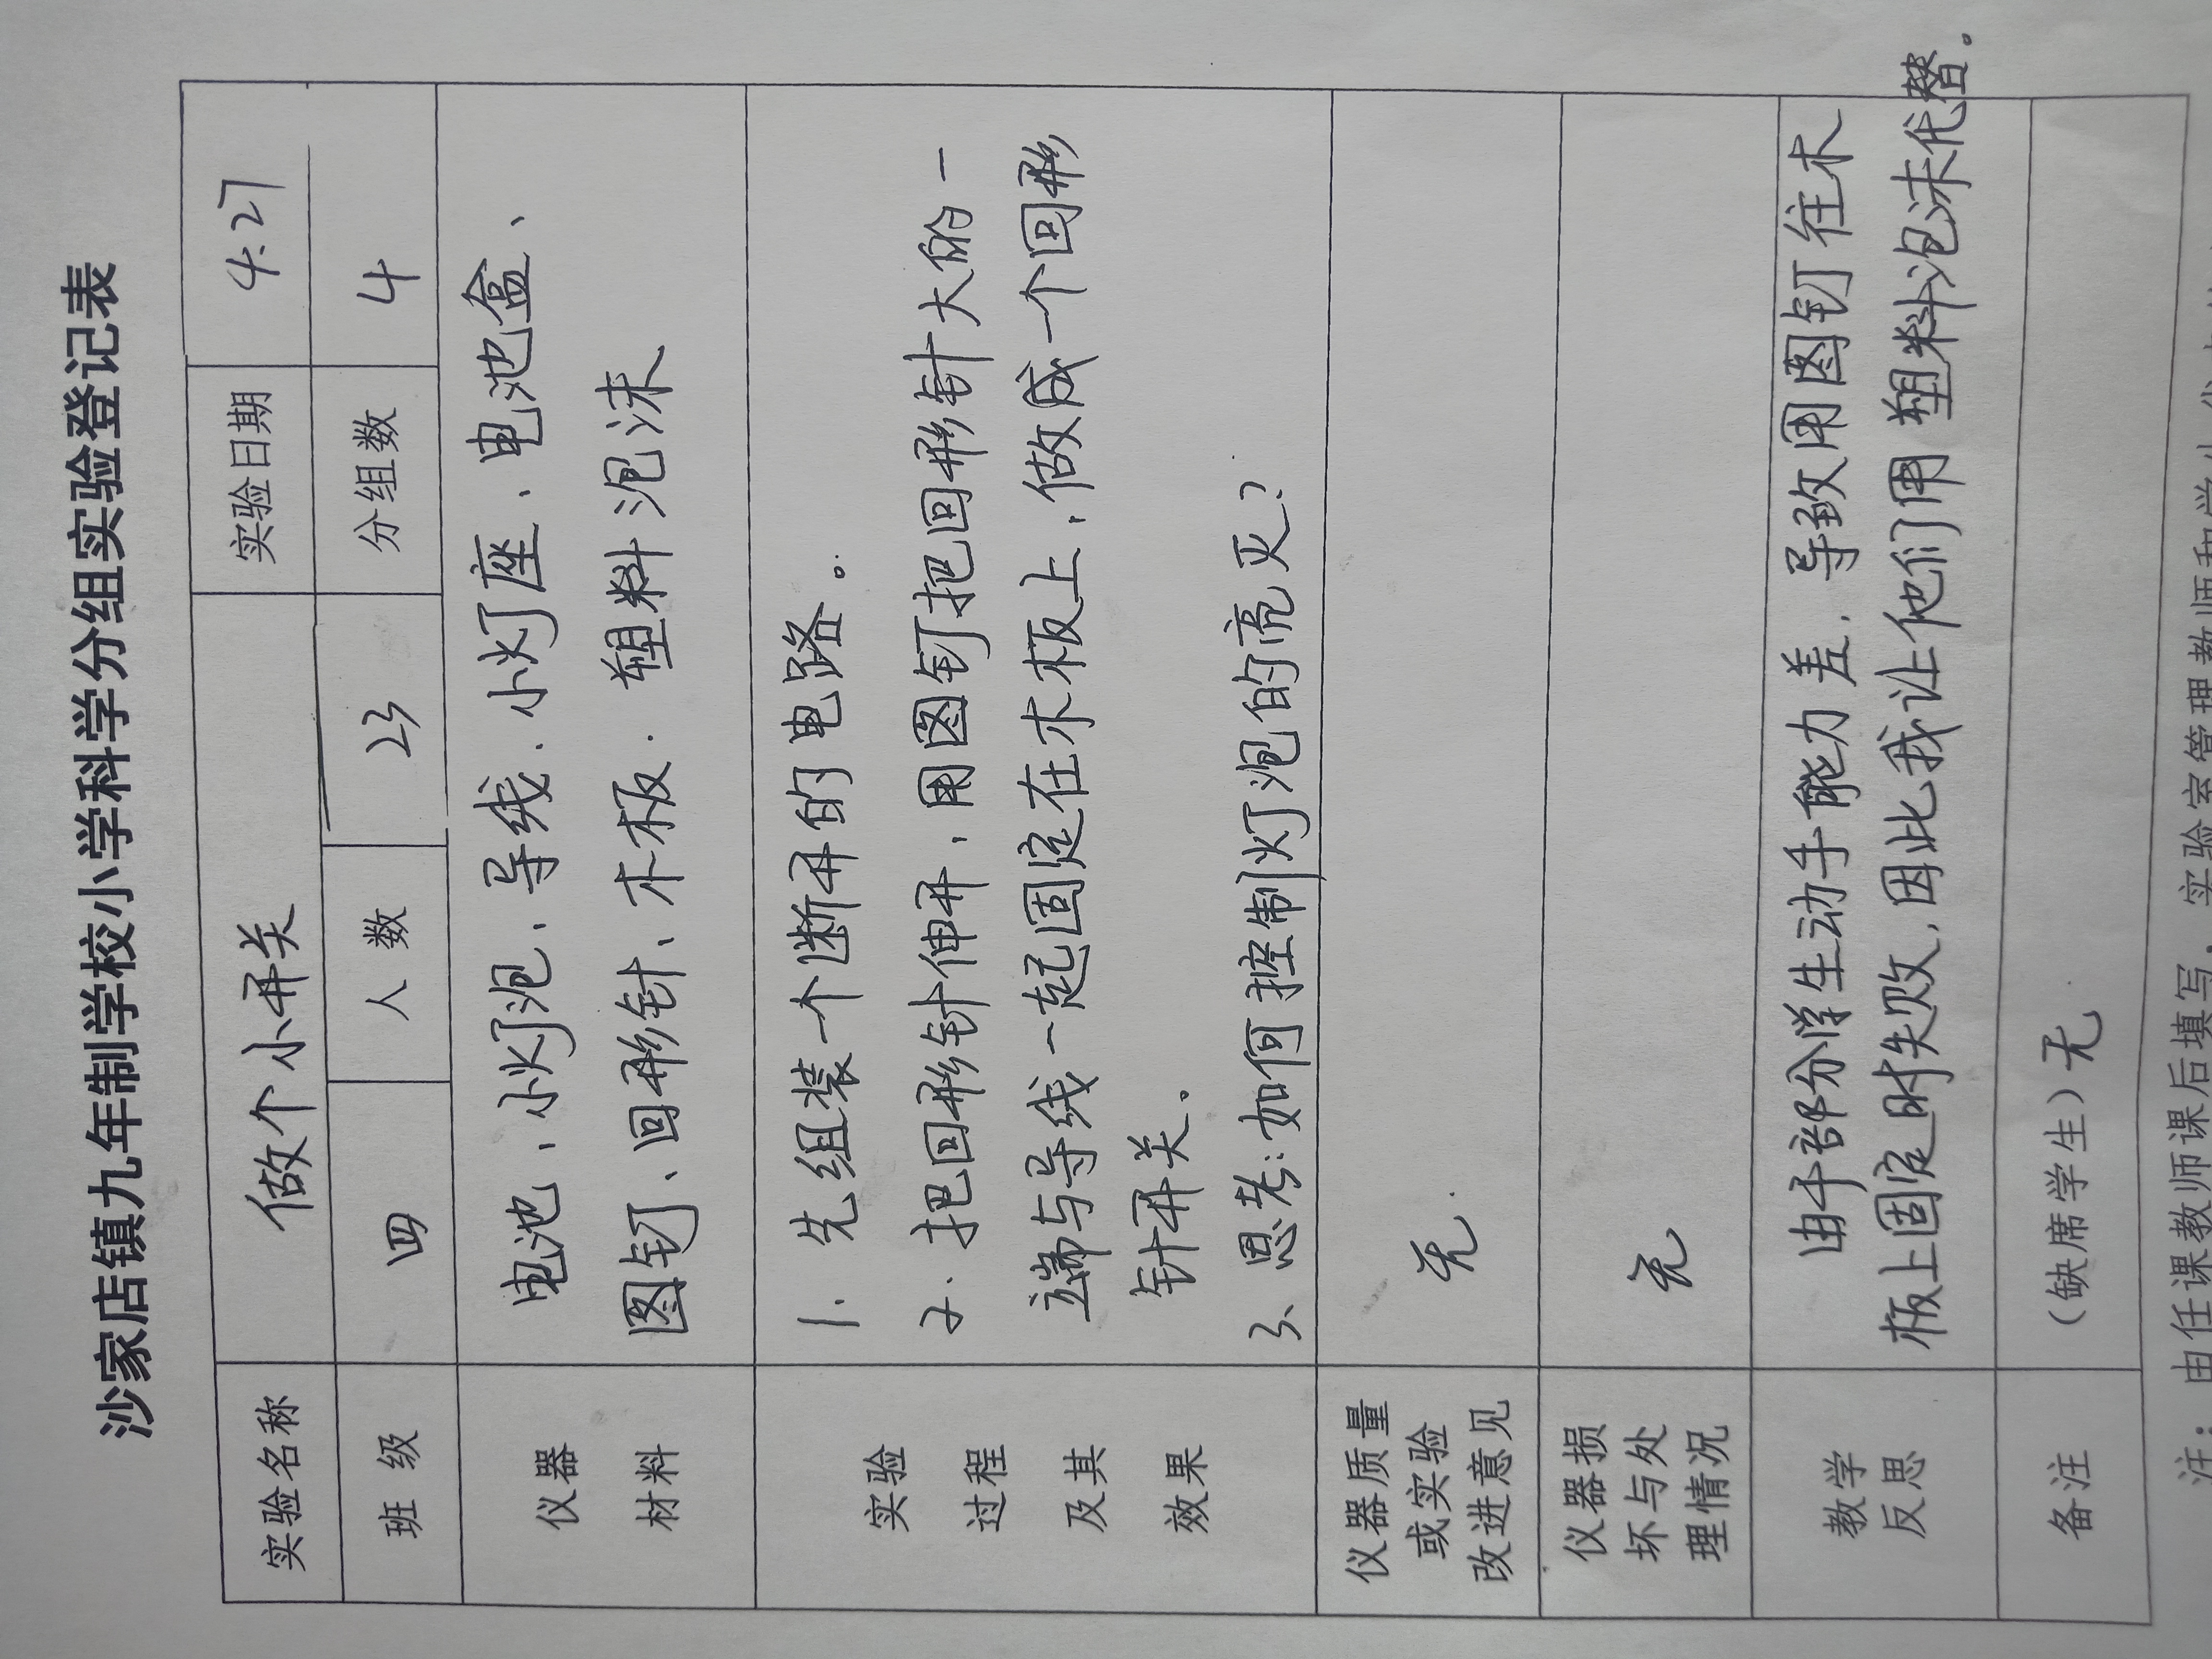 沙家店镇九年制学校小学科学分组实验登记表
实验名称 做个小开关 实验日期 4.27
班 级 四 人 数 23 分组数 4
仪器
材料
电池、小灯泡、导线、小灯座、电池盒、
图钉、回形针、木板、塑料泡沫
实验
过程
及其
效果
1. 先组装一个断开的电路。
2. 把回形针伸开，用图钉把回形针大的一
端与导线一起固定在木板上，做成一个回形
针开关.
3、思考:如何控制灯泡的亮灭?
仪器质量
或实验
改进意见
无.
仪器损
坏与处
理情况
无
教学
反思
由于部分学生动手能力差，导致用图钉往木
板上固定时失败，因此我让他们用塑料泡沫代替。
备注 （缺席学生）无.
注：由任课教师课后填写，实验室管理教师和学